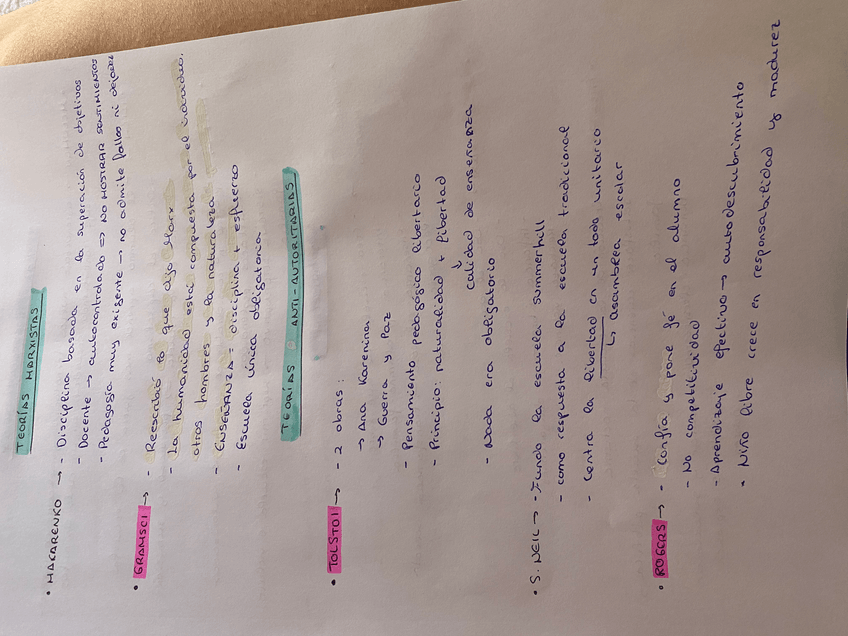 TEORÍAS MARXISTAS
• MAKARENKO → - Disciplina basada en la superación de objetivos
- Docente → autocontrolado ⇒ NO MOSTRAR SENTIMIENTOS
- Pedagogía muy exigente → no admite fallos ni dejadez
• GRAMSCI → - Reescribió lo que dijo Marx
- La humanidad está compuesta por el individuo,
otros hombres y la naturaleza
- ENSEÑANZA = disciplina + esfuerzo
- Escuela única obligatoria
TEORÍAS ANTI-AUTORITARIAS
• TOLSTOI → - 2 obras:
→ Ana Karenina
→ Guerra y Paz
- Pensamiento pedagógico libertario
- Principio: naturalidad + libertad
↓
calidad de enseñanza
- Nada era obligatorio
• S. NEIL → - Fundo la escuela summerhill
- como respuesta a la escuela tradicional
- Centra la libertad en un todo unitario
↳ asamblea escolar
• ROGERS → - Confía y pone fé en el alumno
- No competitividad
- Aprendizaje efectivo → autodescubrimiento
- Niño libre crece en responsabilidad y madurez